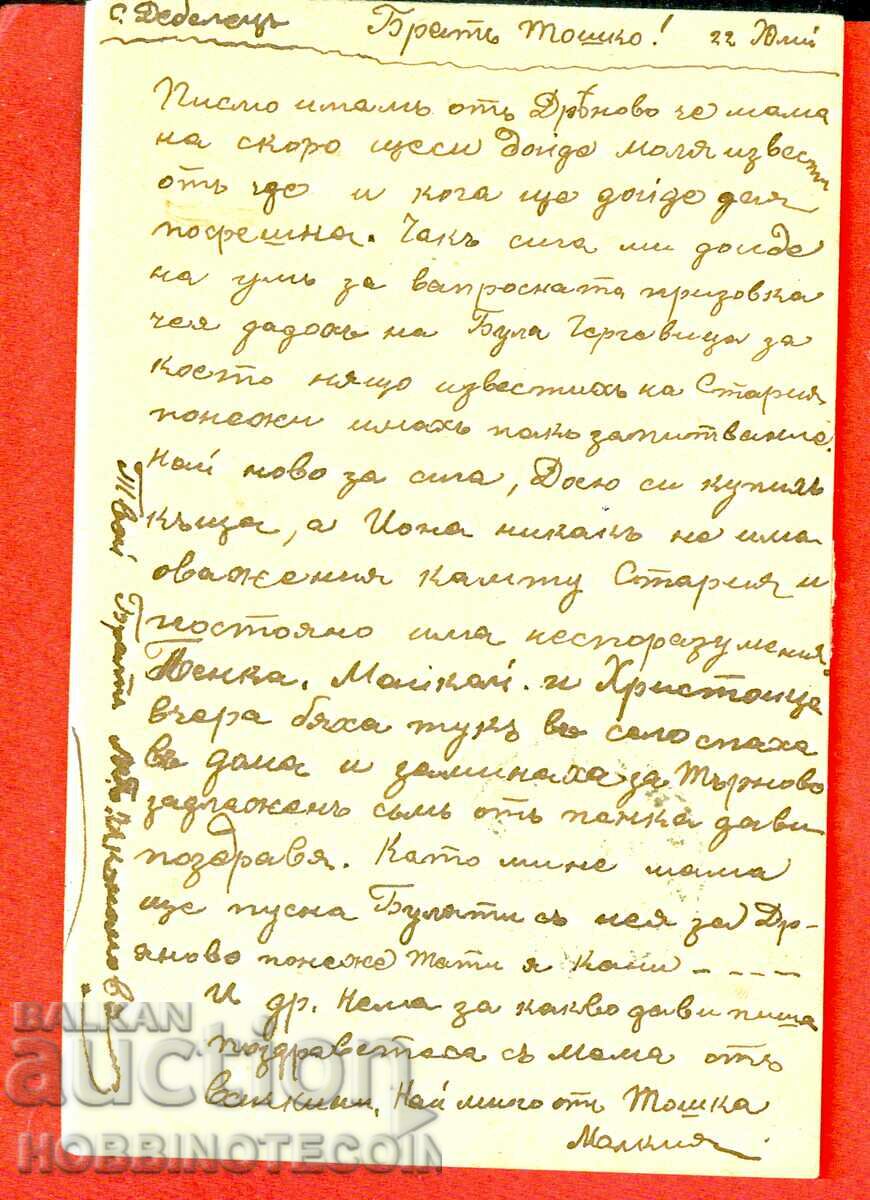 с. Дебелецъ Братъ Тошко! 22 Юлий
Писмо имамъ отъ Дрѣново че мама
на скоро щеси дойде моля извести
отъ где и кога ще дойде дая
посрешна. Чакъ сига ми дойде
на умъ за вапросната призовка
чея дадохъ на Була Герговица за
което нящо известихъ на Стария
понежи имахъ пакъ запитвание.
Най ново за сига, Досю си купилъ
къща, а Иона никакъ не има
оважения камту Стария и
постояно има неспоразумения,
Пенка, Майкай. и Христоице
вчера бяха тукъ въ село спаха
въ дома и заминаха за Търново
задлъженъ съмъ отъ пенка дави
поздравя. Като мине мама
ще пусна Булати съ нея за Др-
яново понеже тати я кани ----
И др. Нема за какво дави пиша
поздраветаса съ мама отъ
ванкини. Най много отъ Тошка
Малкия
Твой Братъ
BALKAN
auction
HOBBINOTECOIN